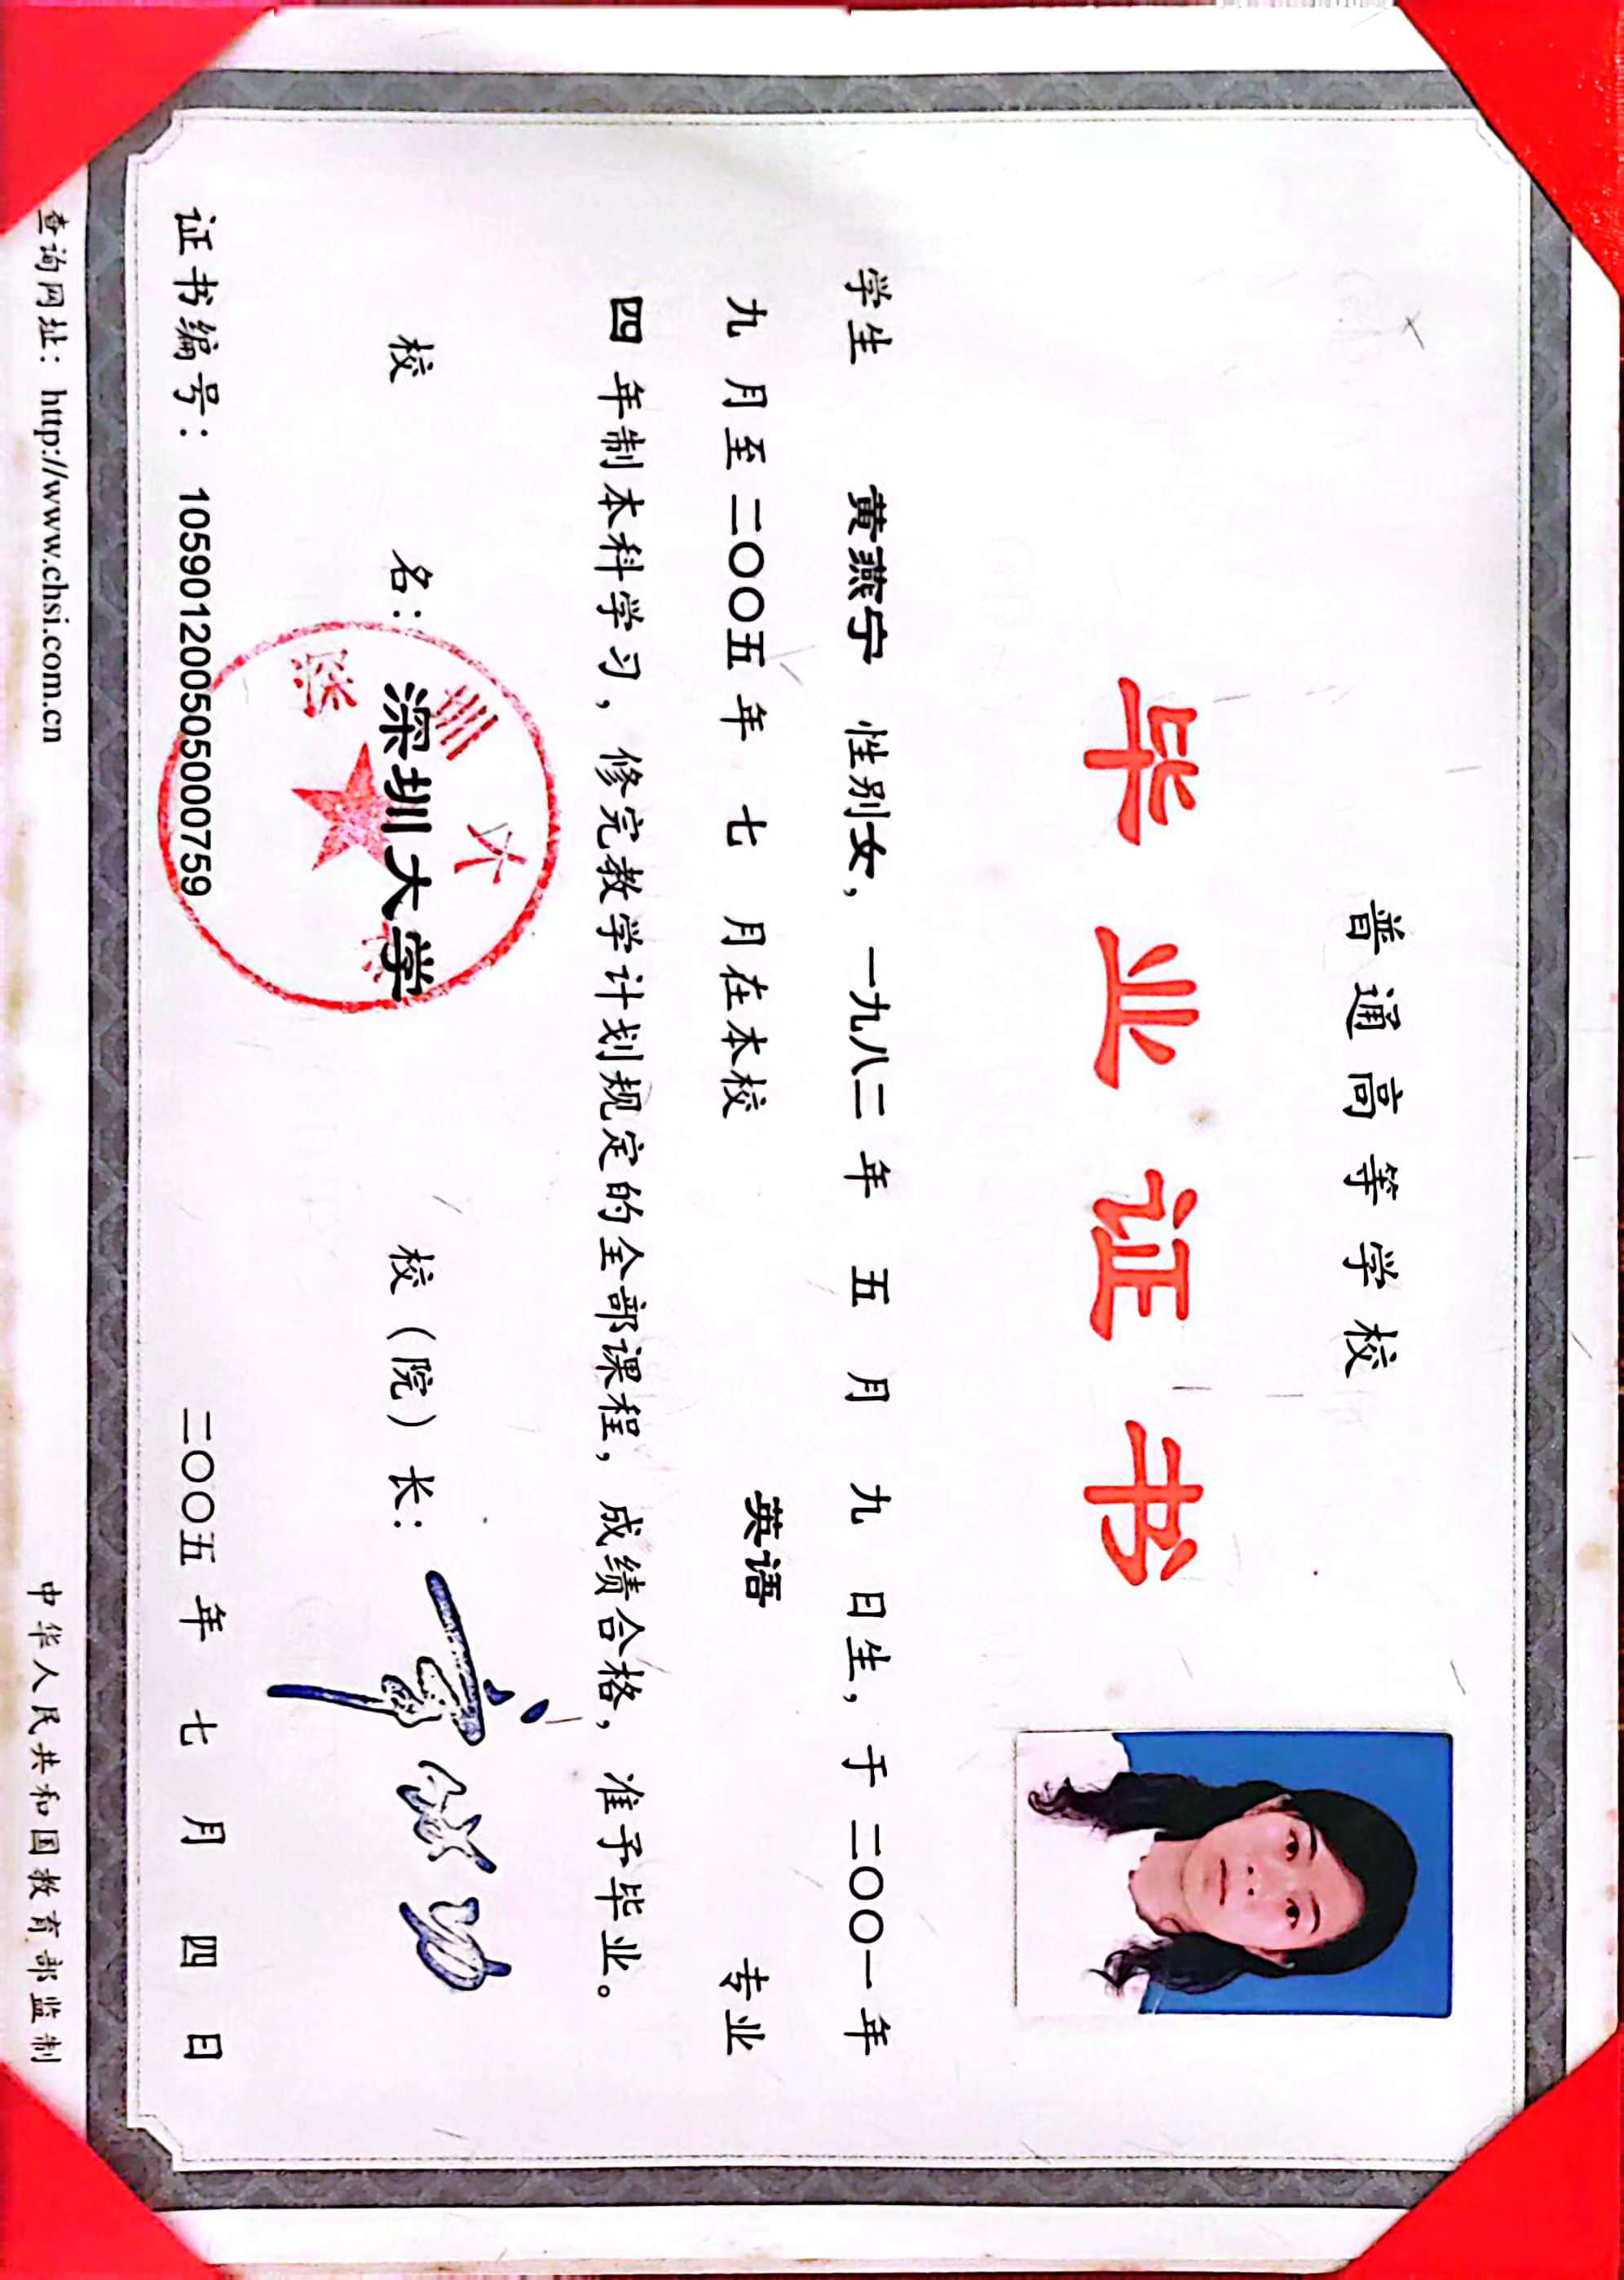 普通高等学校
毕业证书
学生 黄燕宁 性别女，一九八二年 五 月 九 日生，于 二〇〇一年
九 月至 二〇〇五年 七 月在本校 英语 专业
四 年制本科学习，修完教学计划规定的全部课程，成绩合格，准予毕业。
校 名：深圳大学 校（院）长：
深圳大学
证书编号：105901200505000759 二〇〇五年 七 月 四 日
查询网址：http://www.chsi.com.cn 中华人民共和国教育部监制